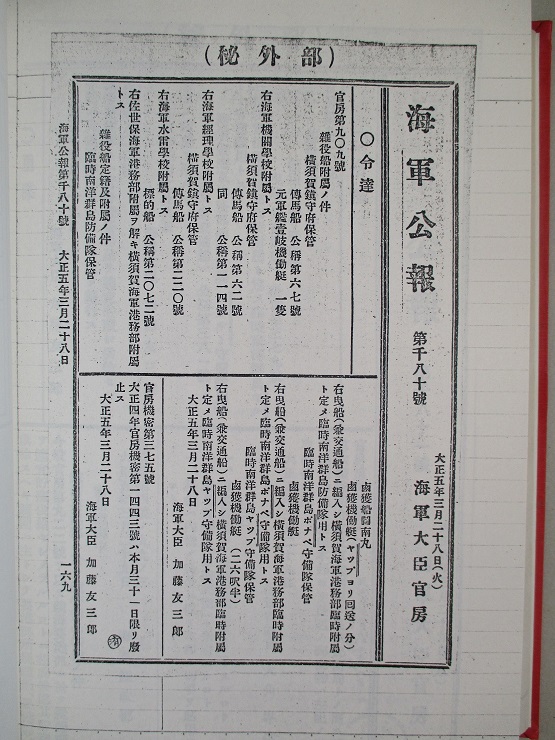 (部外秘)
海軍公報 第千八十號
大正五年三月二十八日(火)
海軍大臣官房
〇令達
官房第九〇九號
雜役船附屬ノ件
横須賀鎮守府保管
傳馬船 公稱第六七號
元軍艦壹岐機働艇 一隻
右海軍機關學校附屬トス
横須賀鎮守府保管
傳馬船 公稱第六二號
同 公稱第二一四號
右海軍經理學校附屬トス
横須賀鎮守府保管
傳馬船 公稱第二二〇號
右海軍水雷學校附屬トス
標的船 公稱第二〇七二號
右佐世保海軍港務部附屬ヲ解キ横須賀海軍港務部附屬
トス
雜役船定籍及附屬ノ件
臨時南洋群島防備隊保管
鹵獲船圖南丸
鹵獲機働艇(ヤップヨリ回送ノ分)
右曳船(兼交通船)ニ編入シ横須賀海軍港務部臨時附屬
ト定メ臨時南洋群島防備隊用トス
臨時南洋群島ポナペ守備隊保管
鹵獲機働艇
右曳船(兼交通船)ニ編入シ横須賀海軍港務部臨時附屬
ト定メ臨時南洋群島ポナペ守備隊用トス
臨時南洋群島ヤップ守備隊保管
鹵獲機働艇(二六呎半)
右曳船(兼交通船)ニ編入シ横須賀海軍港務部臨時附屬
ト定メ臨時南洋群島ヤップ守備隊用トス
大正五年三月二十八日
海軍大臣 加藤友三郎
官房機密第三七五號
大正四年官房機密第一四四三號ハ本月三十一日限リ廢
止ス
大正五年三月二十八日
海軍大臣 加藤友三郎
海軍公報第千八十號 大正五年三月二十八日
一六九